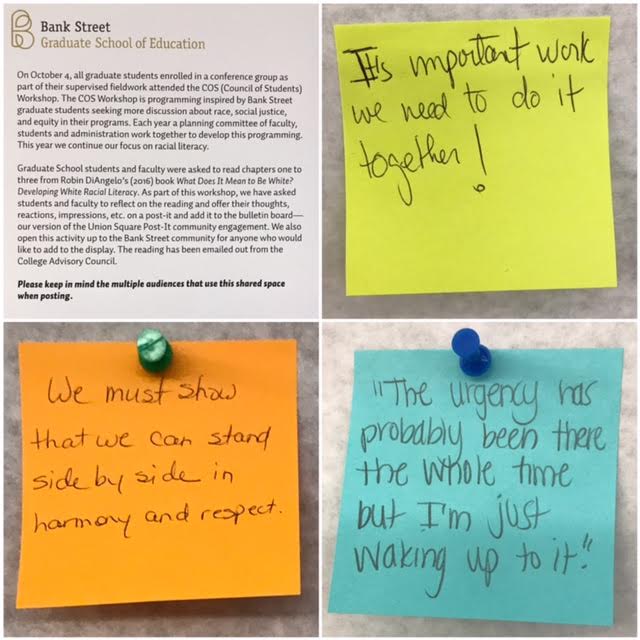 Bank Street
Graduate School of Education
On October 4, all graduate students enrolled in a conference group as
part of their supervised fieldwork attended the COS (Council of Students)
Workshop. The COS Workshop is programming inspired by Bank Street
graduate students seeking more discussion about race, social justice,
and equity in their programs. Each year a planning committee of faculty,
students and administration work together to develop this programming.
This year we continue our focus on racial literacy.
Graduate School students and faculty were asked to read chapters one to
three from Robin DiAngelo's (2016) book What Does It Mean to Be White?
Developing White Racial Literacy. As part of this workshop, we have asked
students and faculty to reflect on the reading and offer their thoughts,
reactions, impressions, etc. on a post-it and add it to the bulletin board—
our version of the Union Square Post-It community engagement. We also
open this activity up to the Bank Street community for anyone who would
like to add to the display. The reading has been emailed out from the
College Advisory Council.
Please keep in mind the multiple audiences that use this shared space
when posting.
It's important work
we need to do it
together!
We must show
that we can stand
side by side in
harmony and respect.
"The urgency has
probably been there
the whole time
but I'm just
waking up to it."